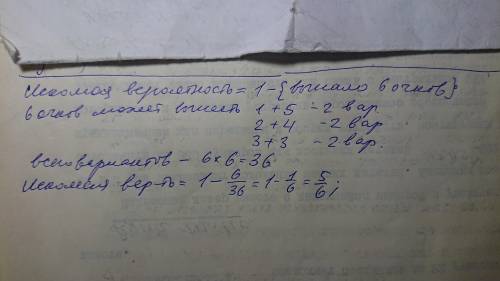 Искомая вероятность = 1 - {выпало 6 очков}
6 очков может выпасть 1+5 - 2 вар
2+4 - 2 вар
3+3 - 2 вар.
всего вариантов - 6×6=36
Искомая вер-ть = 1 - 6/36 = 1 - 1/6 = 5/6;